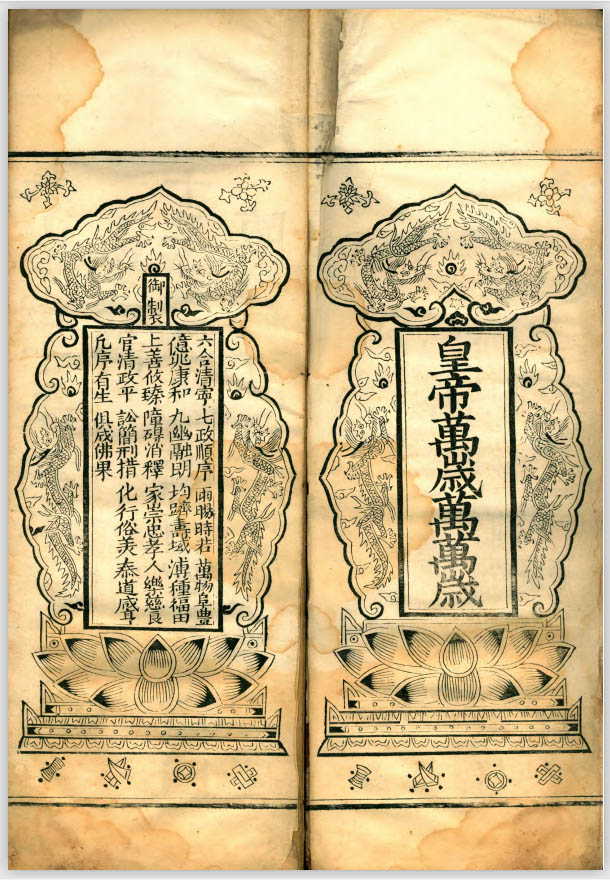 皇帝萬歲萬萬歲
御製
六合清寧 七政順序 雨暘時若 萬物阜豐
億兆康和 九幽融朗 均躋壽域 溥種福田
上善攸臻 障礙消釋 家崇忠孝 人樂慈良
官清政平 訟簡刑措 化行俗美 泰道咸亨
凡厥有生 俱成佛果